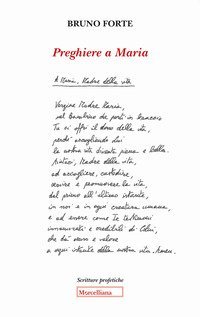 BRUNO FORTE
Preghiere a Maria
A Maria, Madre della vita
Vergine Madre Maria,
nel Bambino che porti in braccio
Tu ci offri il dono della vita,
perché accogliendo Lui
la nostra vita diventi piena e bella.
Aiutaci, Madre della vita,
ad accogliere, custodire,
servire e promuovere la vita,
dal primo all'ultimo istante,
in noi e in ogni creatura umana,
e ad essere come Te testimoni
innamorati e credibili di Colui,
che dà senso e valore
a ogni istante della nostra vita. Amen.
Scritture profetiche
Morcelliana